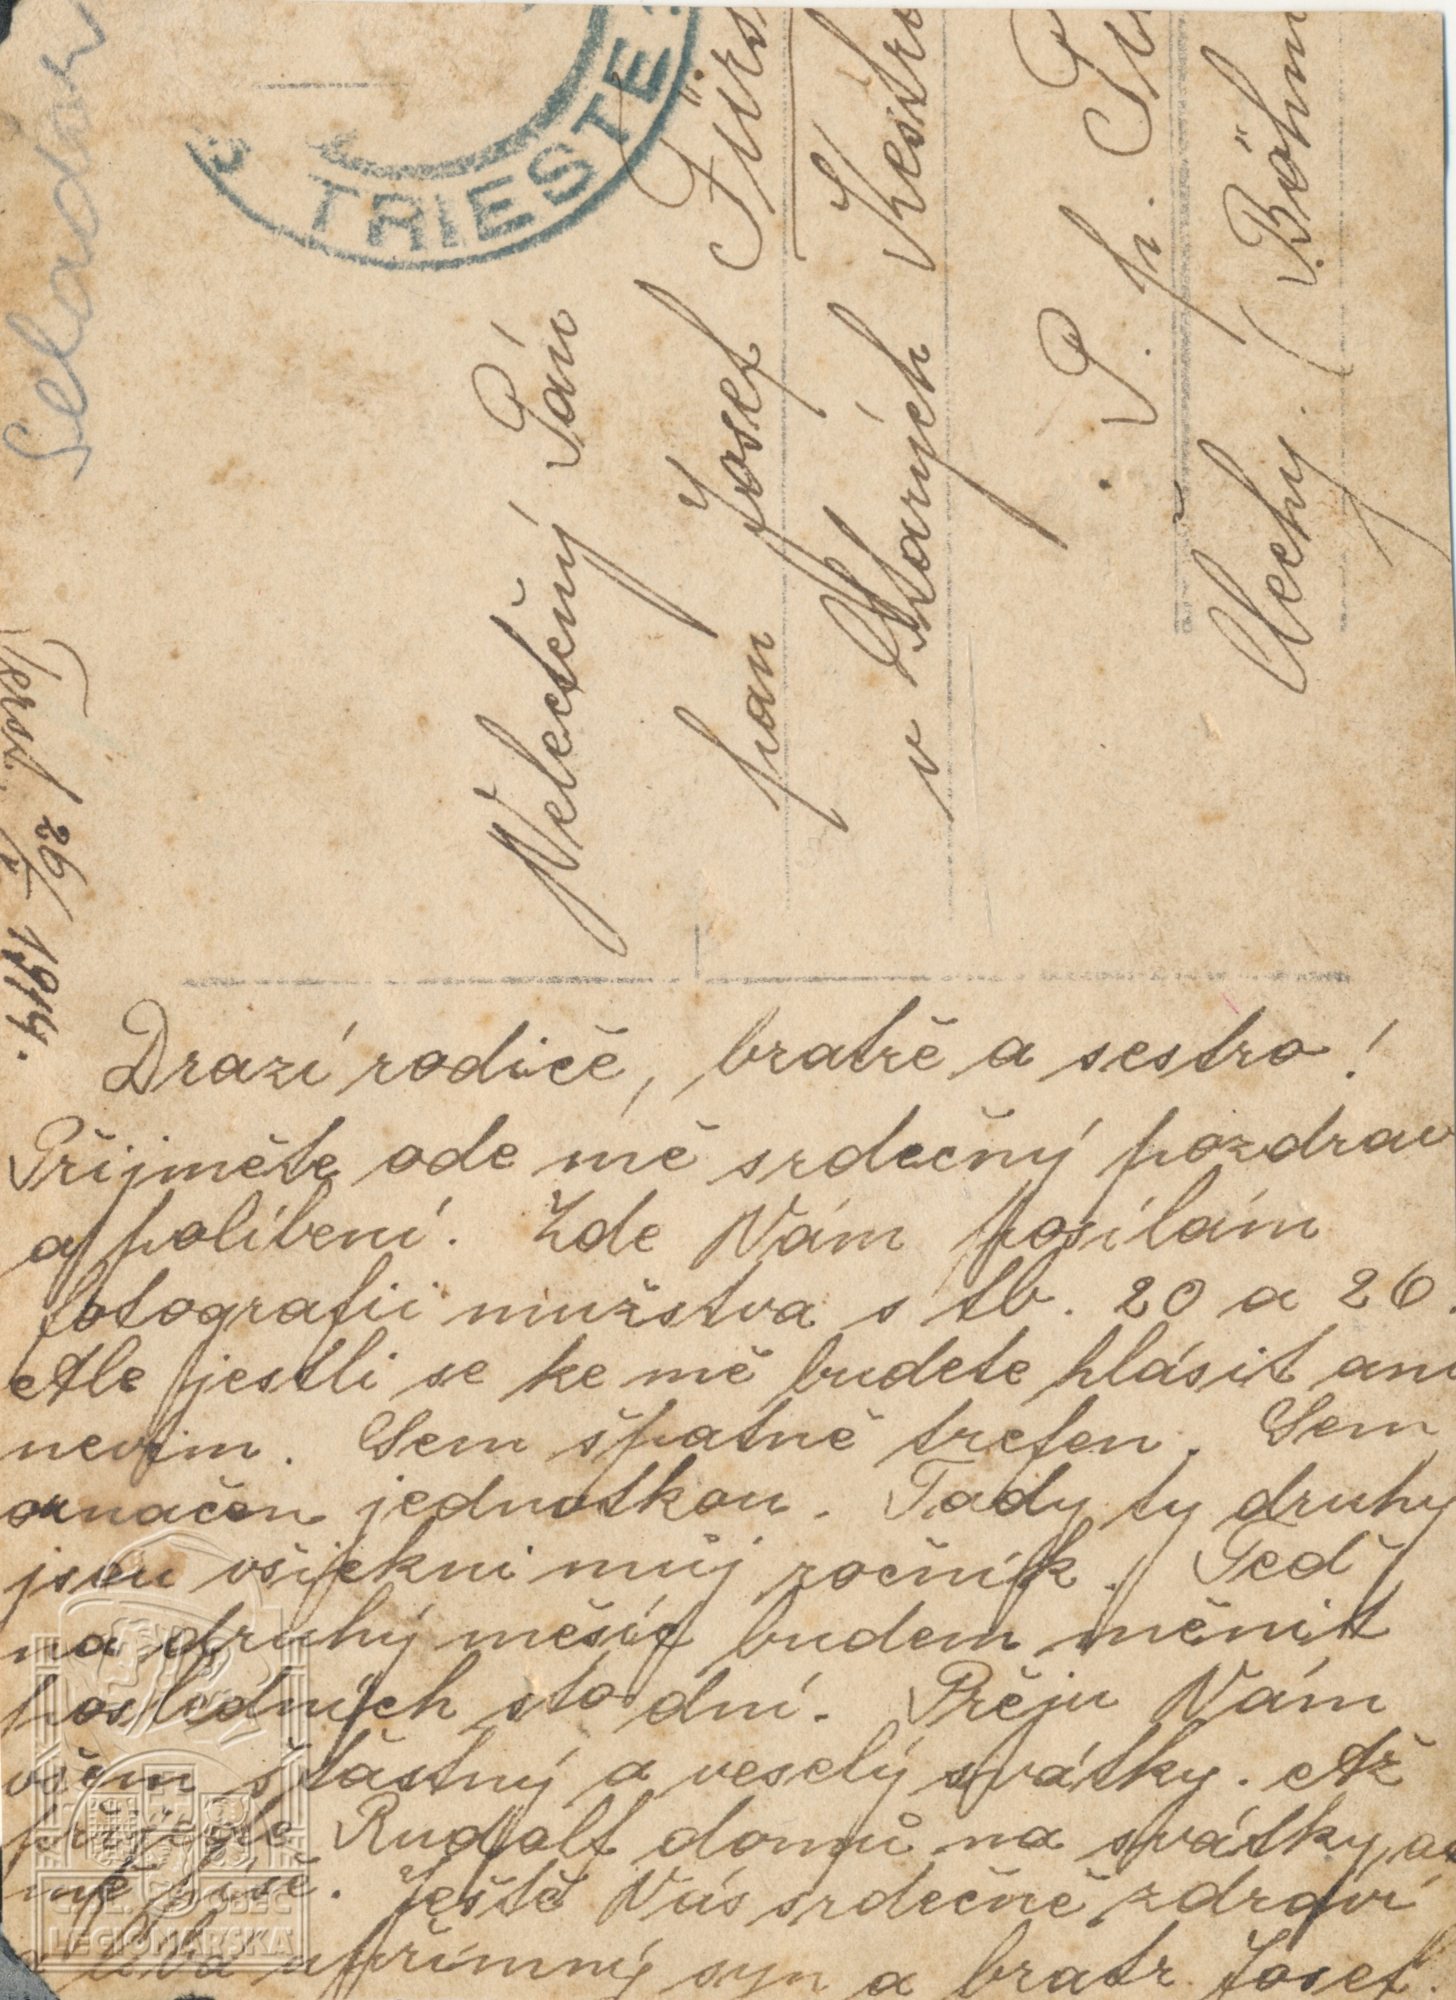 Seladon
TRIESTE
Velectěný Pán
pan Josef Fürs
v Starých Kestřa
P. p. Pi
Čechy. (Böhm
Terst 26/ 1914.
Drazí rodiče, bratře a sestro!
Přijměte ode mě srdečný pozdrav
a políbení. Zde Vám posílám
fotografii mužstva s tb. 20 a 26.
Ale jestli se ke mě budete hlásit ani
nevim. Sem špatně trefen. Sem
označen jednotkou. Tady ty druhý
jsou všickni můj ročník. Teď
na druhý měsíc budem měnit
posledních sto dní. Přeju Vám
všem šťastný a veselý svátky. Až
přijede Rudolf domů na svátky, ať
mě píše. Ještě Vás srdečně zdraví
a líbá upřímný syn a bratr Josef.
ČSL. OBEC
LEGIONÁŘSKÁ